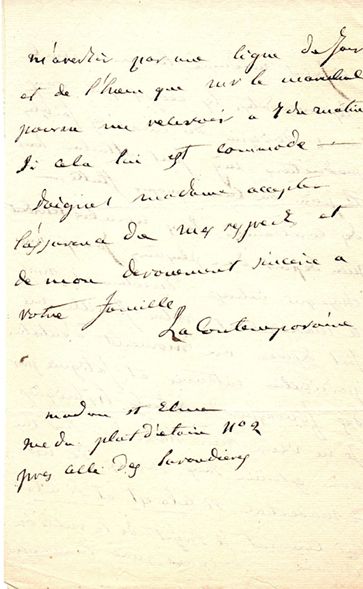 m'avertir par une ligne du Jour
et de l'heure que Mr le marechal
pourra me recevoir a 7 du matin
Si cela lui est commode
Daignez madame accepter
l'assurance de mes respects et
de mon devouement sincere a
votre famille
La Contemporaine
madame st Elme
rue du plat d'etain n° 2
pres celle des lavandieres